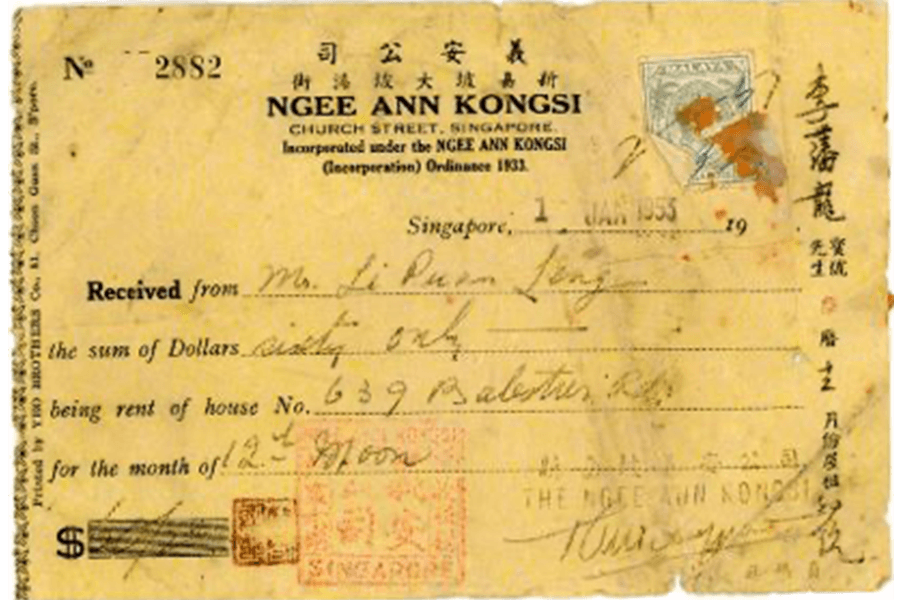 Nº 2882
司公安義
街諄坡大坡嘉新
NGEE ANN KONGSI
CHURCH STREET, SINGAPORE.
Incorporated under the NGEE ANN KONGSI
(Incorporation) Ordinance 1933.
MALAYA
Singapore, 1 JAN 1953 19
Received from Mr. Li Puan Leng
the sum of Dollars sixty only
being rent of house No. 639 Balestier Rd.
for the month of 12th Moon
$
SINGAPORE
THE NGEE ANN KONGSI
李藩龍
寶號
先生
Printed by YEO BROTHERS Co.,